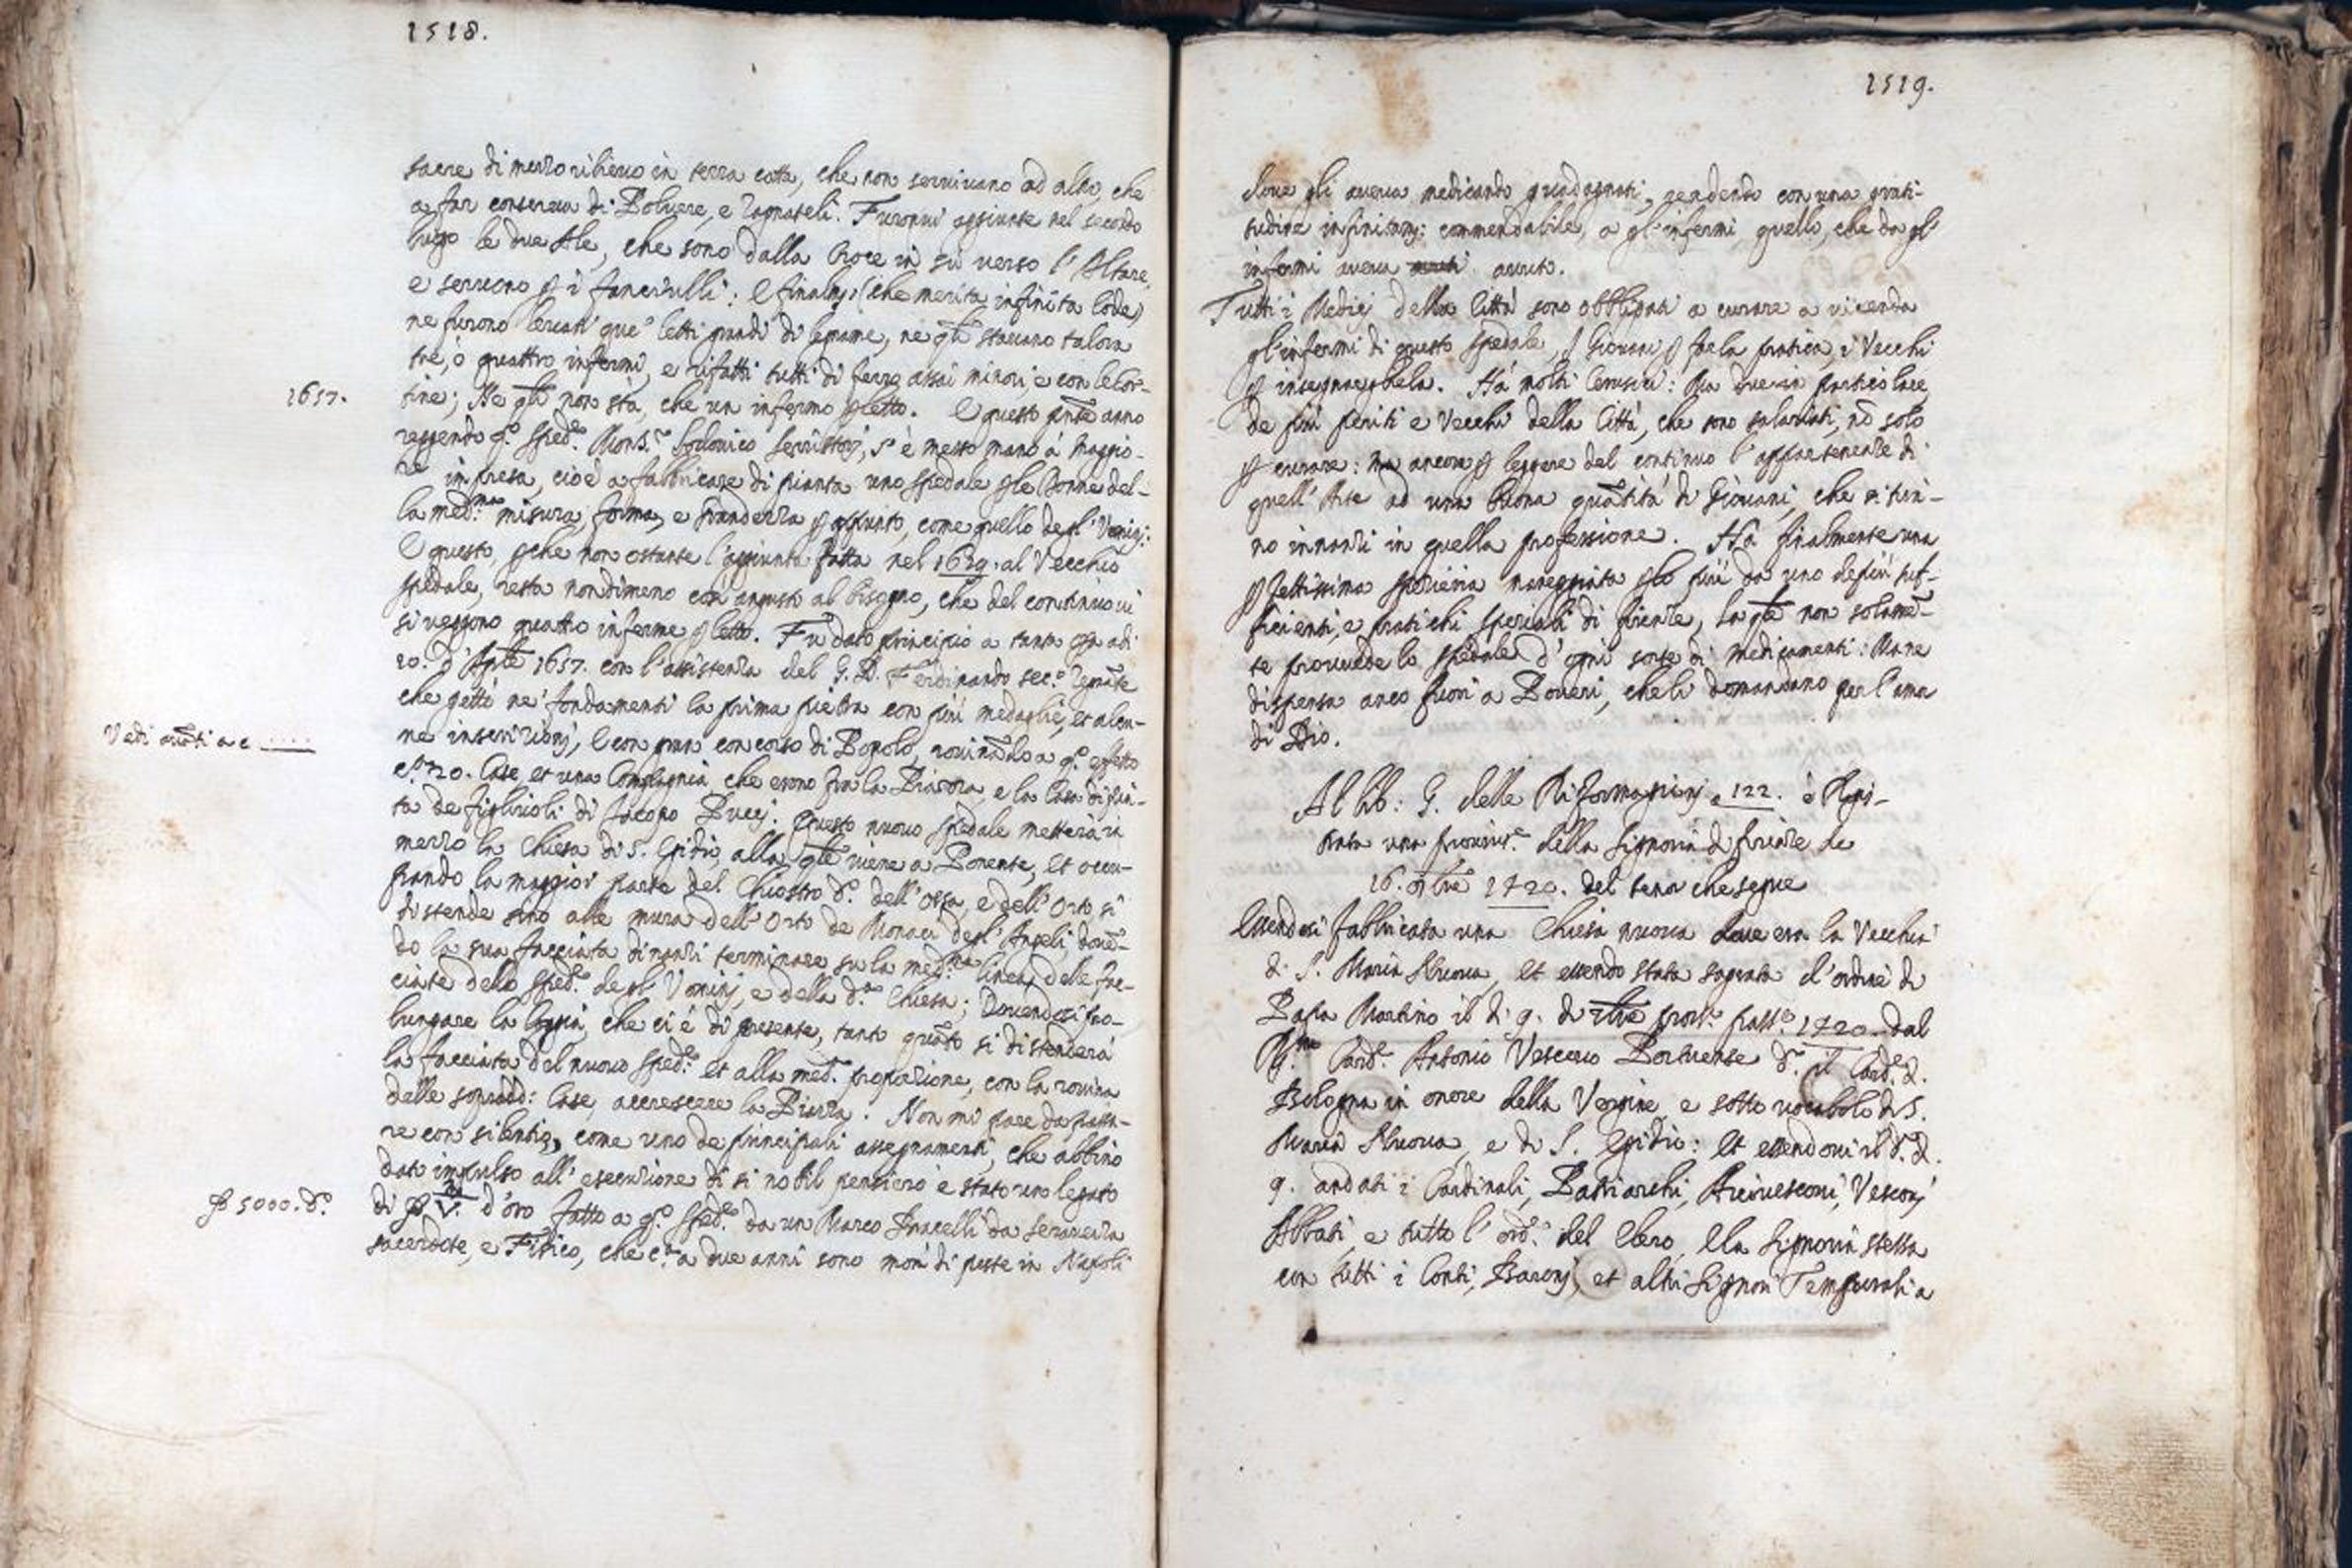 1518.
sacre di mezzo rilievo in terra cotta, che non servivano ad altro, che
a far conserva di Polvere, e ragnateli. Furonvi aggiunte nel secondo
luogo le due Ale, che sono dalla Croce in sù verso l'Altare,
e servono p i fanciulli: E finalm: (che merita infinita lode)
ne furono levati que' letti grandi di legname, ne qli stavano talora
tre, ò quattro infermi, e rifatti tutti di ferro assai minori, e con le cor-
1657.
tine; Ne qli non stà, che un infermo p letto. E questo pnte anno
reggendo qo. Sped.e Mons.r Lodovico Serristori, s'è messo mano à maggio-
re impresa, cioè a fabbricare di pianta uno spedale p le Donne del-
la med.ma misura, forma, e grandezza p appunto, come quello degl' Uomini:
E questo, p che non ostante l'aggiunta fatta nel 1629. al Vecchio
spedale, resta nondimeno così angusto al bisogno, che del continuo vi
si veggono quatto inferme p letto. Fu dato principio a tanta opa adì
con l'assistenza del G. D. Ferdinando sec.o Regnãte
che gettò ne' fondamenti la prima pietra con più medaglie, et alcu-
Vedi avãti a c .....
ne inscrizioni, e con gran concorso di Popolo, rovinãdo a q.o effetto
20. Case, et una Compagnia che erono fra la Piazza, e la Casa dipin-
ta de figliuoli di Jacopo Pucci. Questo nuovo spedale metterà in
mezzo la Chiesa di S. Egidio, alla qle viene a Ponente, et occu-
pando la maggior parte del Chiostro d.o dell'Ossa, e dell'Orto si
distende sino alle mura dell'Orto de Monaci degl'Angeli, dovē-
do la sua facciata dinanzi terminare su la med.ma linea delle fac-
ciate dello Sped.e degl'Uomini, e della d.a Chiesa; Dovendosi pro-
lungare la loggia, che ci è di presente, tanto quãto si distenderà
la facciata del nuovo Sped.e et alla med.a proporzione, con la rovina
delle sopradd: Case, accrescere la Piazza. Non mi pare da passa-
re con silentio, come uno de principali assegnamenti, che abbino
dato impulso all'esecuzione di si nobil pensiero è stato uno legato
5000. d.o
di V. d'oro fatto a q.o Sped.e da un Marco da Seravezza
sacerdote, e Fisico, che c.a a due anni sono morì di peste in Napoli
1519.
dove gli aveva medicando guadagnati, rendendo con una grati-
tudine infinitam: commendabile, a gl'infermi quello, che da gl'
infermi aveva avuto.
Tutti i Medici della Città sono obbligati a curare a vicenda
gl'infermi di questo Spedale, I Giovani p far la pratica, i Vecchi
p insegnargliela. Hà molti Cerusici: Ma due in particolare
de più periti e Vecchi della Città, che sono salariati, nõ solo
p curare: ma ancora p leggere del continuo l'appartenente di
quell'Arte ad una buona quãtità di Giovani, che si tiri-
no innanzi in quella professione. Hà finalmente una
pfettissima spezieria maneggiata p lo più da uno de più suf-
ficienti, e pratichi speziali di Firenze, la qle non solamē-
te provvede lo spedale d'ogni sorte di medicamenti: Ma ne
dispensa anco fuori a Poveri, che li domandano per l'amor
di Dio.
Al lib: G. delle Riformagioni a 122. è Regi-
strata una provvis.e della Signoria di Firenze de
16. 1720. del tenor che segue
Essendosi fabbricata una Chiesa nuova dove era la Vecchia
di S. Maria Nuova, et essendo stata sagrata d'ordine di
Papa Martino il dì 9. di pross.o pass.o 1720. dal
Card.e Antonio Vescovo Portuense d.o il Card.e di
Bologna in onore della Vergine e sotto vocabolo di S.
Maria Nuova, e di S. Egidio: et essendovi il d.o dì
9. andati i Cardinali, Patriarchi, Arcivescovi, Vescovi
Abbati, e tutto l'ord.e del Clero, E la Signoria stessa
con tutti i Conti, Baroni, et altri Signori Temporali a